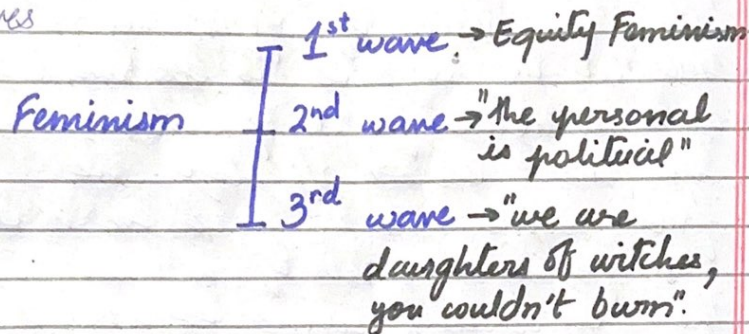 1st wave. → Equity Feminism
Feminism 2nd wave → "the personal
is political"
3rd wave → "we are
daughters of witches,
you couldn't burn".